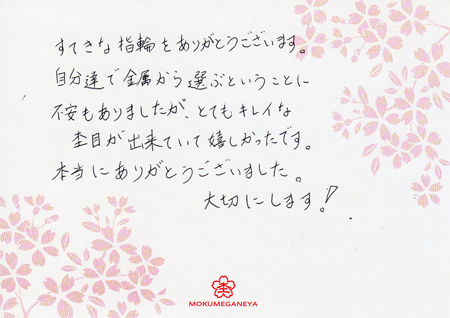 すてきな指輪をありがとうございます。
自分達で金属から選ぶということに
不安もありましたが、とてもキレイな
杢目が出来ていて嬉しかったです。
本当にありがとうございました。
大切にします!
杢
MOKUMEGANEYA